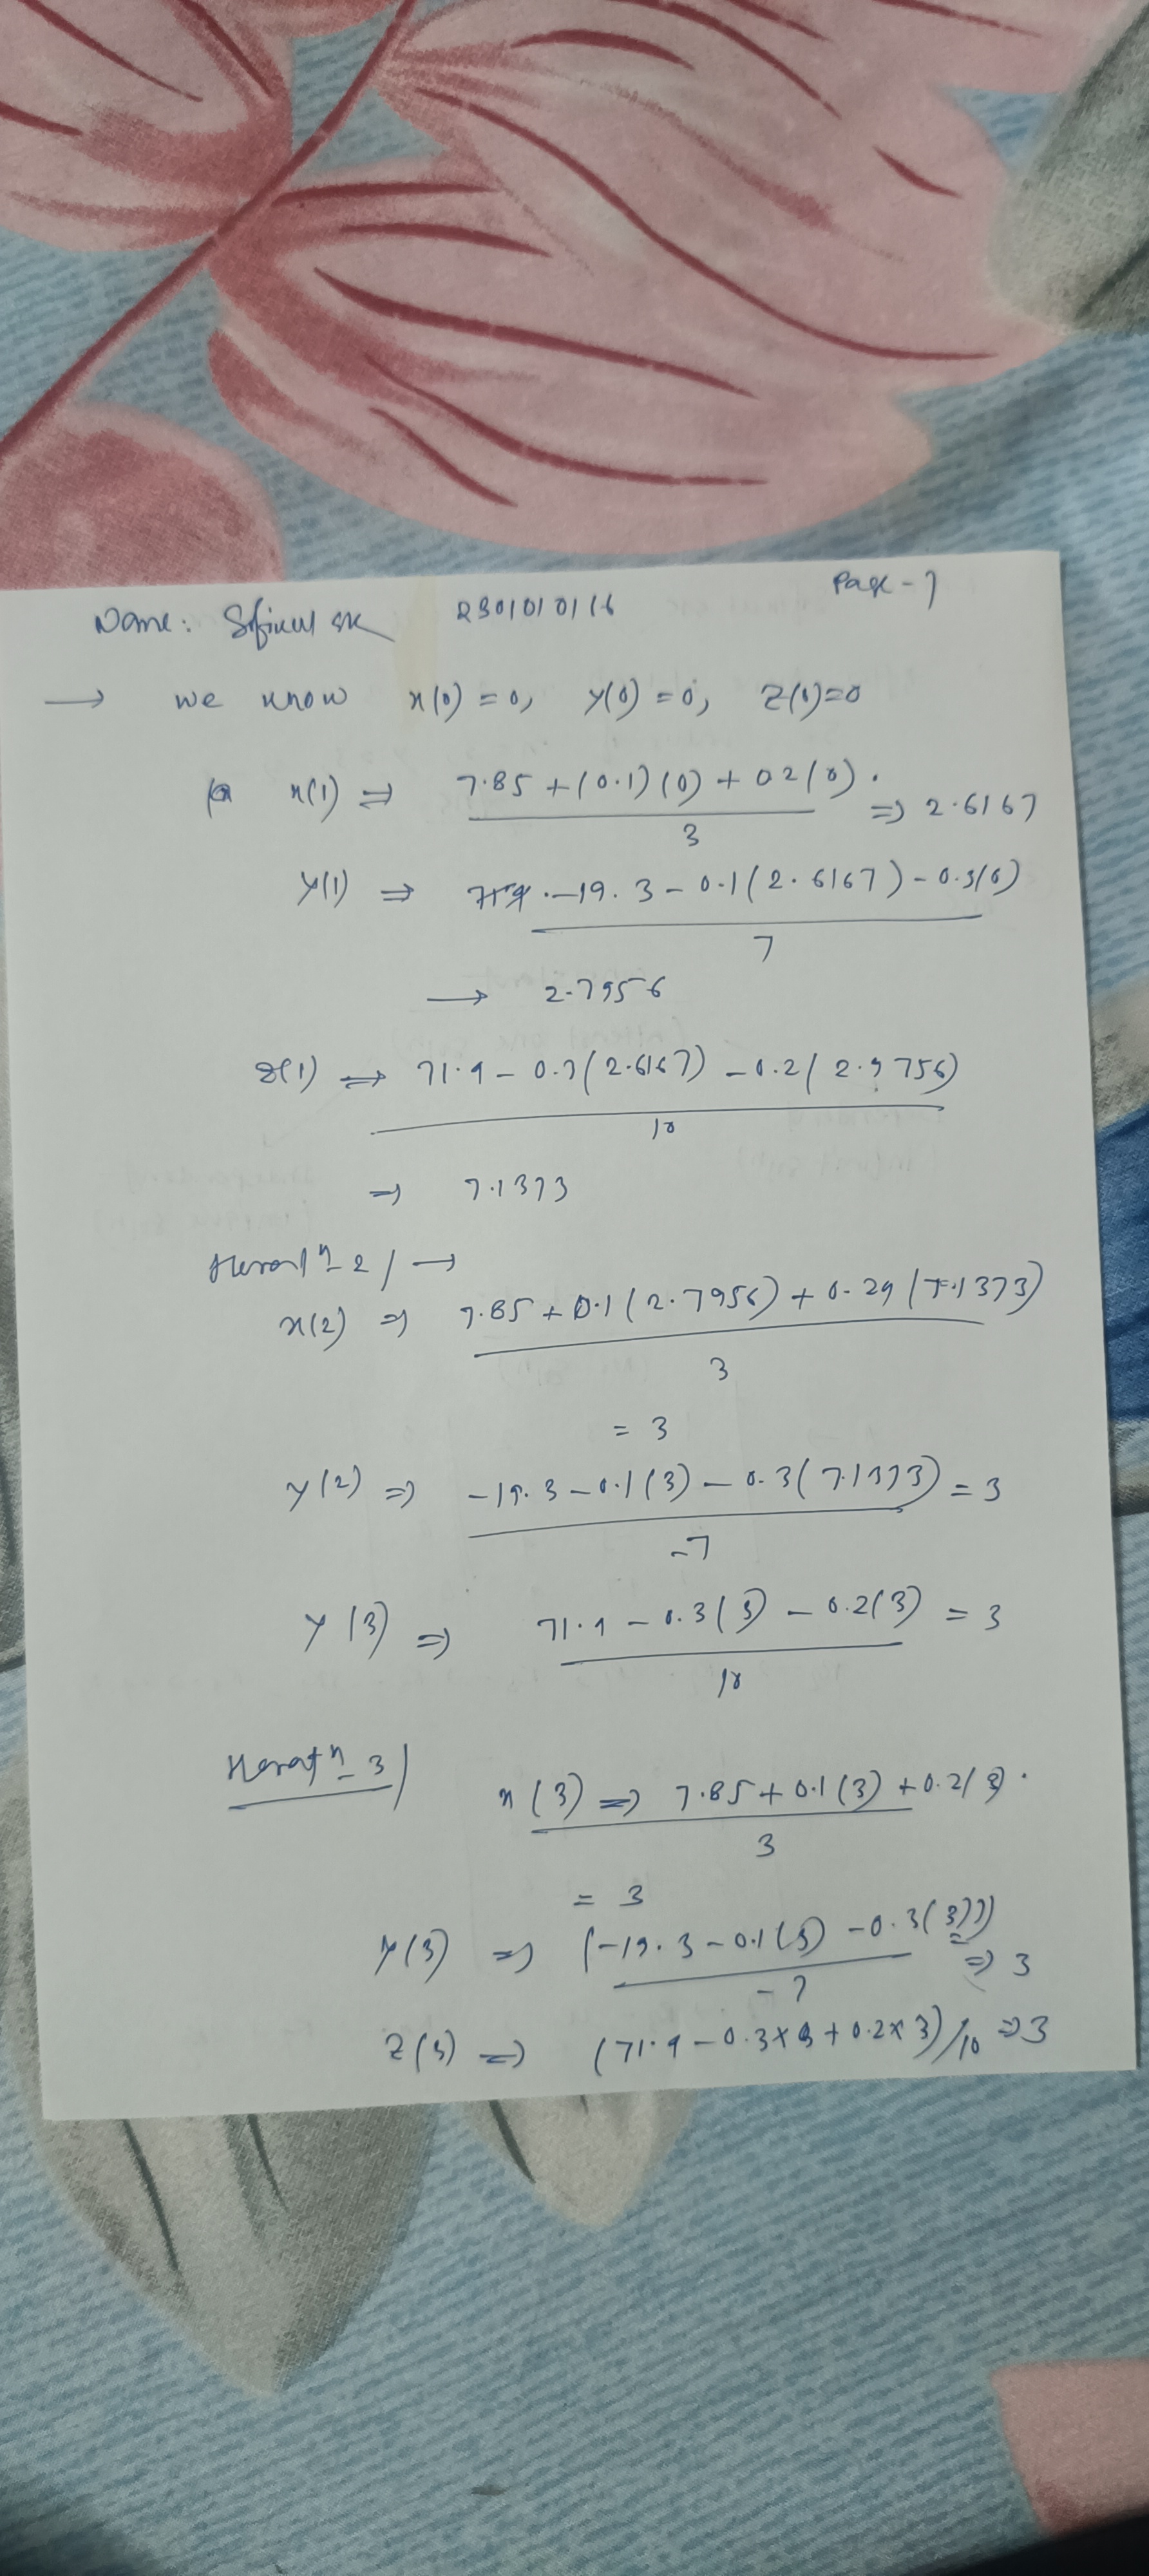 Page - 1
Name: Sofikul SK 2301010116
→ we know x(0) = 0, y(0) = 0, z(0)=0
x(1) ⇒ 7.85 + (0.1)(0) + 0.2(0) ⇒ 2.6167
3
y(1) ⇒ -19.3 - 0.1(2.6167) - 0.3(0)
7
→ 2.7956
z(1) ⇒ 71.4 - 0.3(2.6167) - 0.2(2.9756)
10
⇒ 7.1373
Iteratn - 2) →
x(2) ⇒ 7.85 + 0.1(2.7956) + 0.29(7.1373)
3
= 3
y(2) ⇒ -19.3 - 0.1(3) - 0.3(7.1373) = 3
-7
y(3) ⇒ 71.4 - 0.3(3) - 0.2(3) = 3
10
Iteratn - 3)
x(3) ⇒ 7.85 + 0.1(3) + 0.2(3)
3
= 3
y(3) ⇒ (-19.3 - 0.1(3) - 0.3(3)) ⇒ 3
-7
z(3) ⇒ (71.4 - 0.3×3 + 0.2×3)/10 ⇒ 3